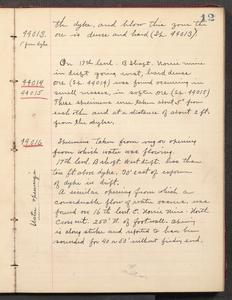 12
the dyke, and below this zone the
44013. ore is dense and hard (Sp. 44013).
1' from dyke
On 17th level - B Shaft. Norrie mine
in drift going west, hard dense
44014 ore (Sp. 44014) was found occurring in
44015 small masses, in softer ore (Sp. 44015)
These specimens were taken about 5" from
each other and at a distance of about 2 ft.
from the dyke.
44016 Specimen taken from vug or opening
from which water was flowing.
17th level B Shaft. West drift. Less than
ten ft above dyke. 30' east of exposure
of dyke in drift.
Water openings
A similar opening from which a
considerable flow of water occurs, was
found on 16th level C. Norrie Mine - North
Crosscut. 200' N. of footwall. Opening
is along strike and reported to have been
sounded for 40 or 50' without finding end.